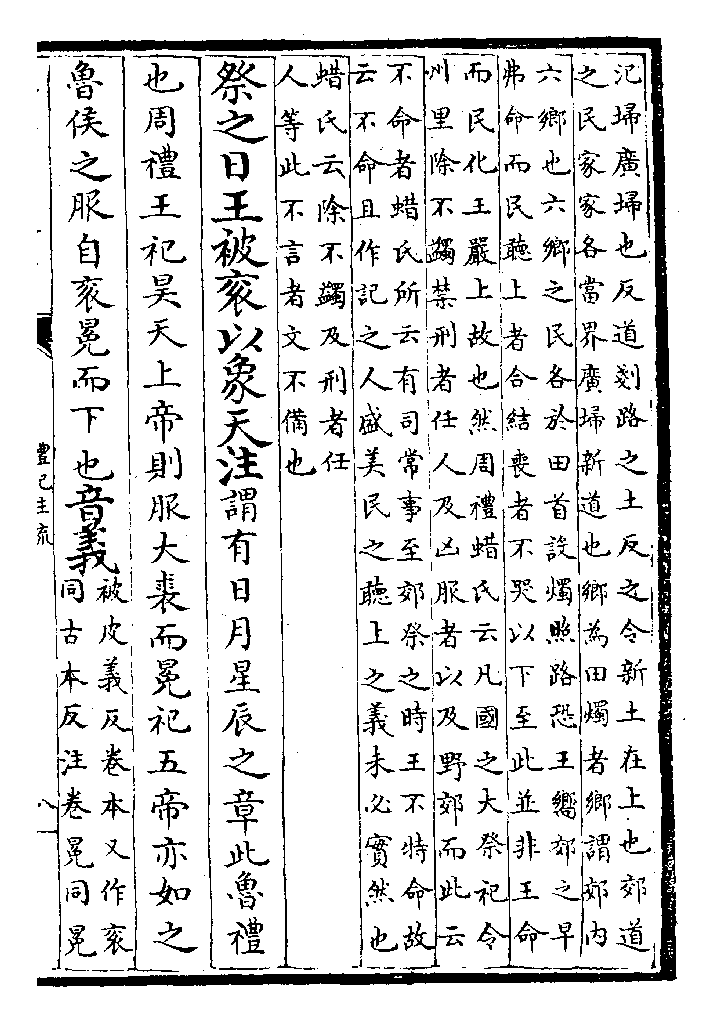 氾埽廣埽也反道剗路之土反之令新土在上也郊道
之民家家各當界廣埽新道也鄉為田燭者鄉謂郊内
六鄉也六鄉之民各於田首設燭照路恐王嚮郊之早
弗命而民聽上者合結喪者不哭以下至此並非王命
而民化王嚴上故也然周禮蜡氏云凡國之大祭祀令
州里除不蠲禁刑者任人及凶服者以及野郊而此云
不命者蜡氏所云有司常事至郊祭之時王不特命故
云不命且作記之人盛美民之聽上之義未必實然也
蜡氏云除不蠲及刑者任
人等此不言者文不備也
祭之日王被衮以象天注謂有日月星辰之章此魯禮
也周禮王祀昊天上帝則服大裘而冕祀五帝亦如之
魯侯之服自衮冕而下也音義
被皮義反卷本又作衮
同古本反注卷冕同冕
禮記注疏
八